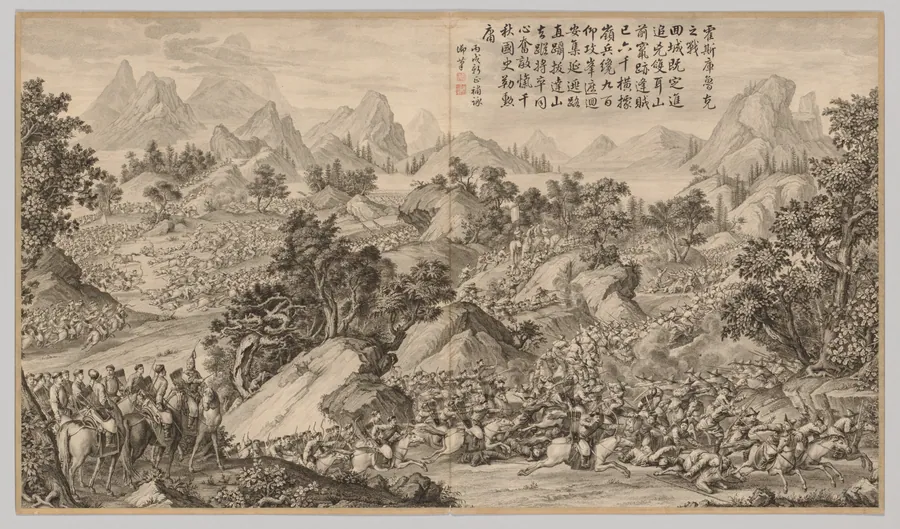 霍斯庫魯克
之戰
回城既定進
追兇雙耳山
前竄跡逢賊
已六千橫據
嶺兵纔九百
仰攻峯遮迴
安集延逋路
直躡拔達山
去蹤將卒同
心奮敵愾千
秋國史勒勲
庸
丙戌新正補詠
御筆